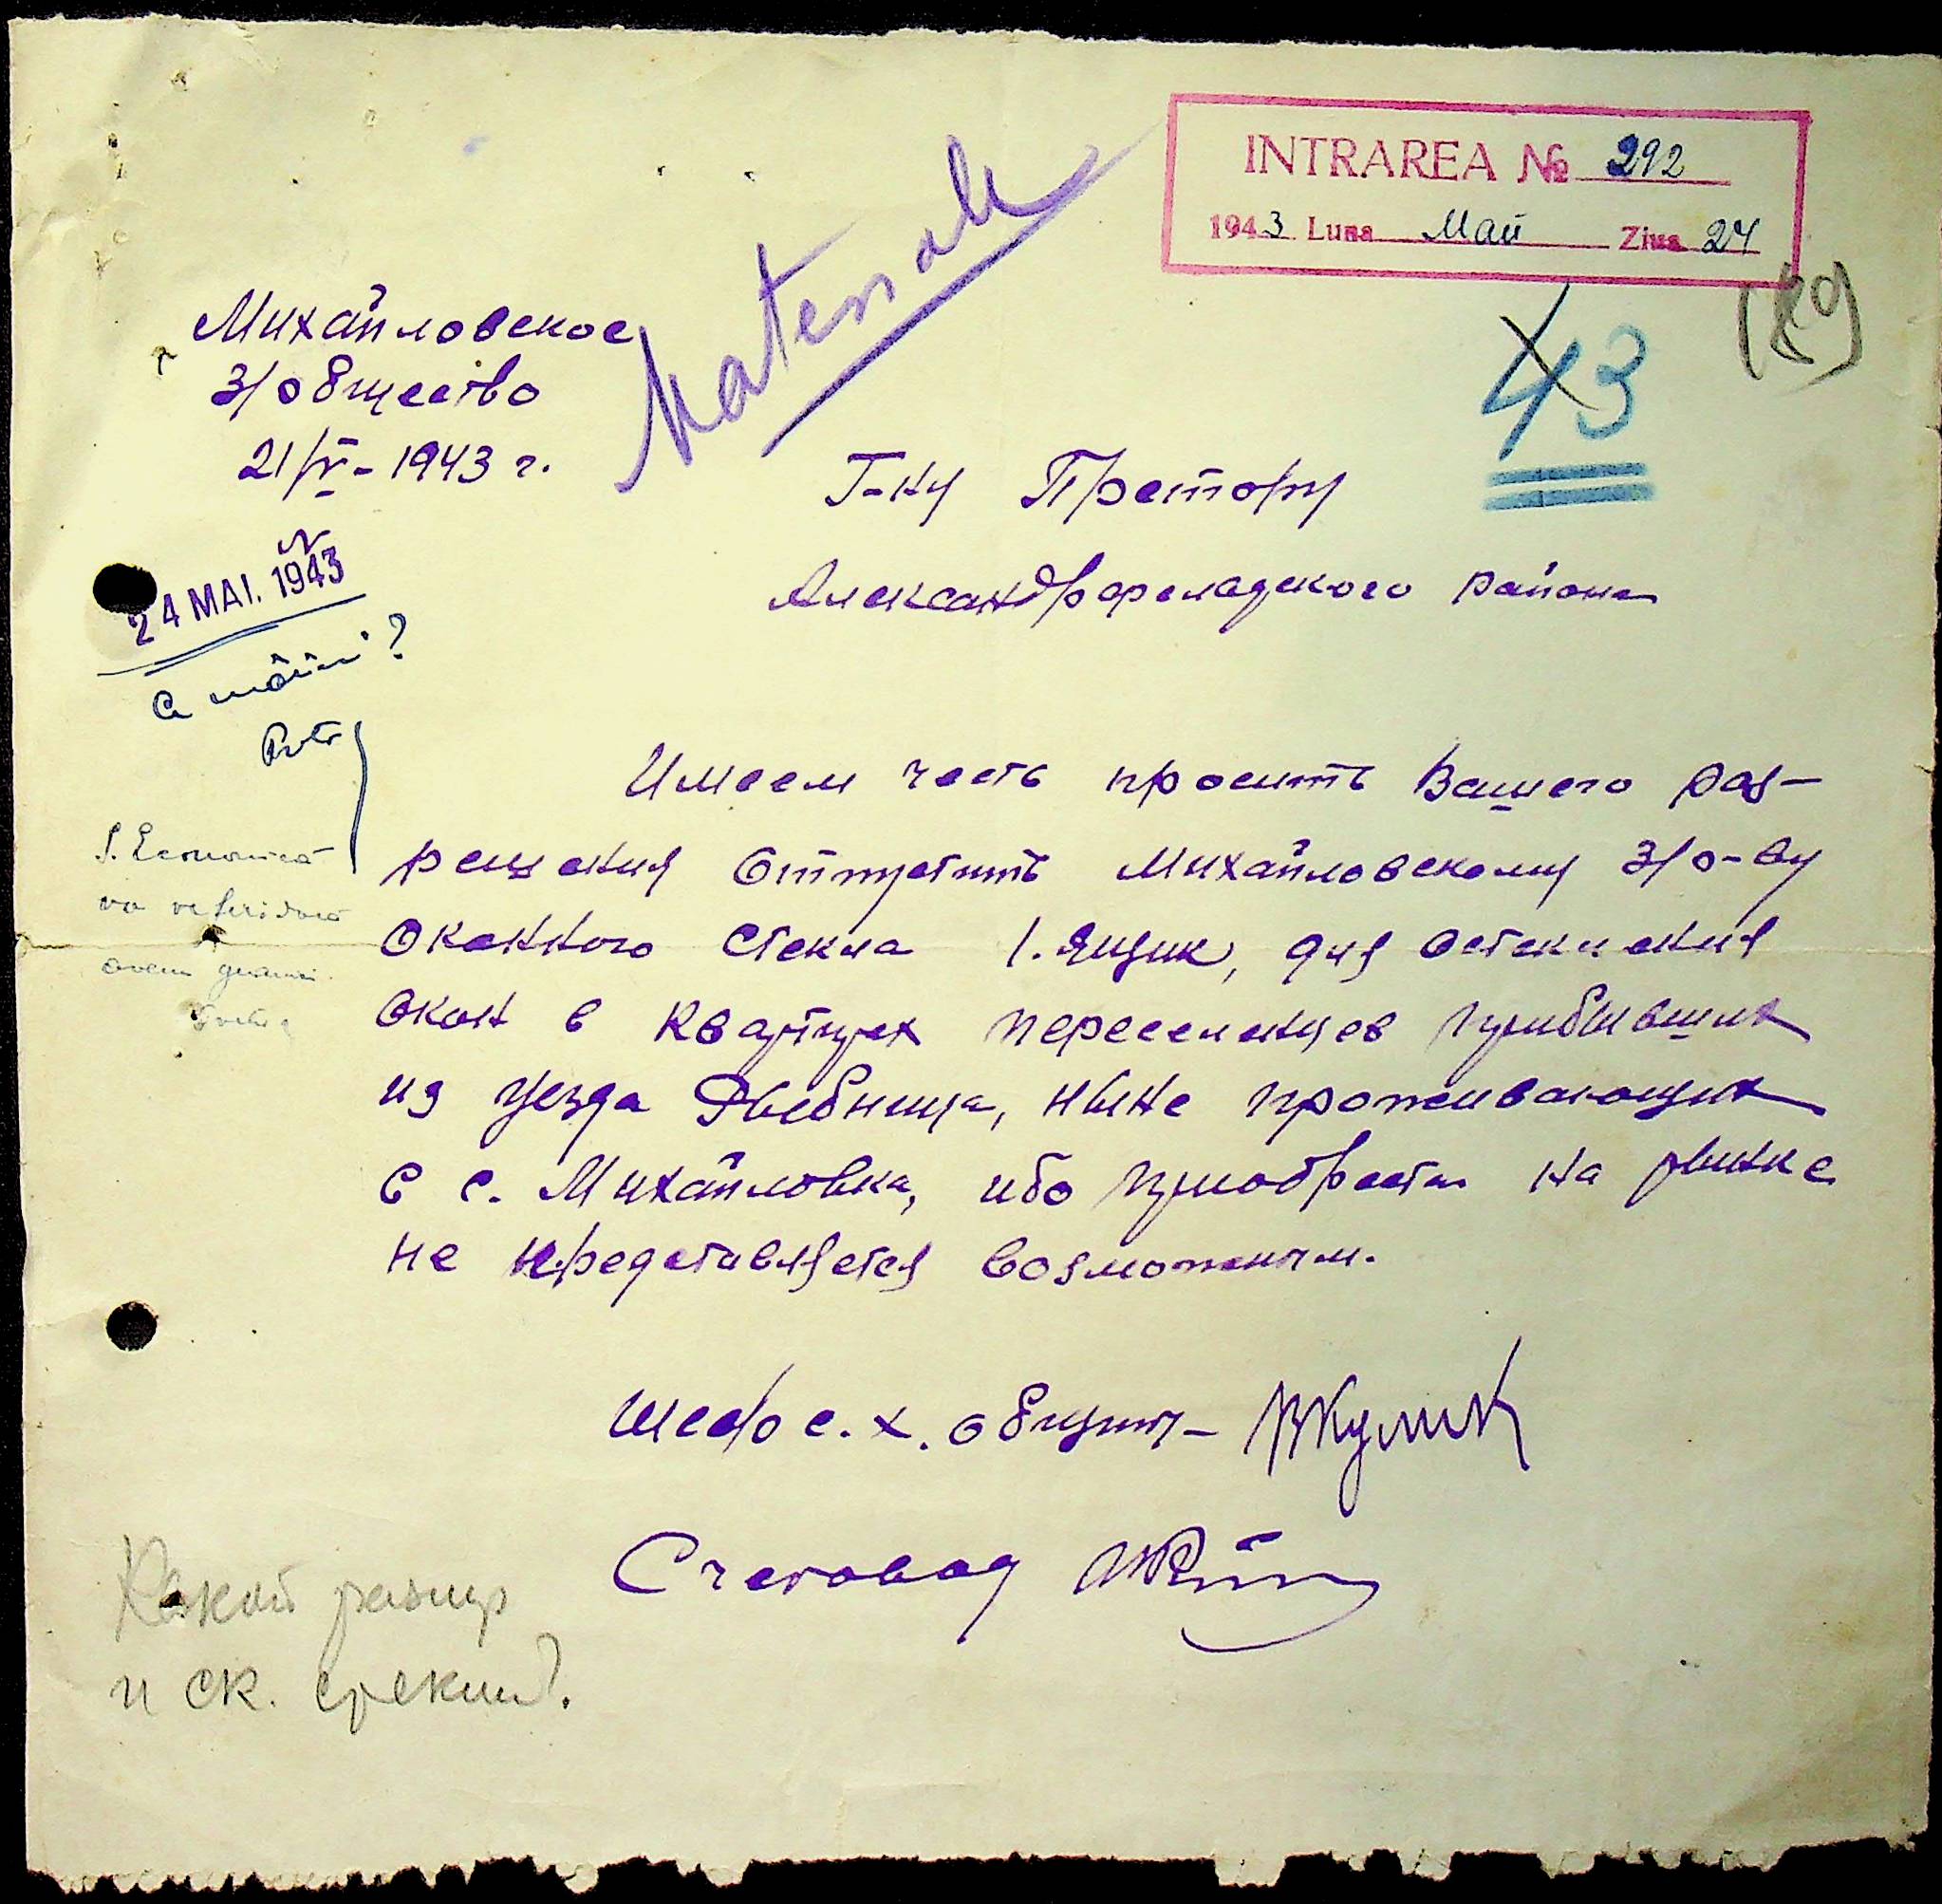 INTRAREA № 292
1943 Luna Май Ziua 24
Materiale
43
(89)
Михайловское
з/общество
21/V - 1943 г.
Г-ну Претору
Александрфельдского района
24 MAI. 1943
Имеем честь просить Вашего раз-
решения отпустить Михайловскому з/о-ву
оконного стекла 1. ящик, для остекления
окон в квартирах переселенцев прибывших
из уезда Рыбница, ныне проживающих
в с. Михайловка, ибо приобрести на рынке
не представляется возможным.
Шеф с. х. общины - ВКулик
Счетовод
S. Economică
va referi dacă
avem geamuri.
Какой размер
и ск.